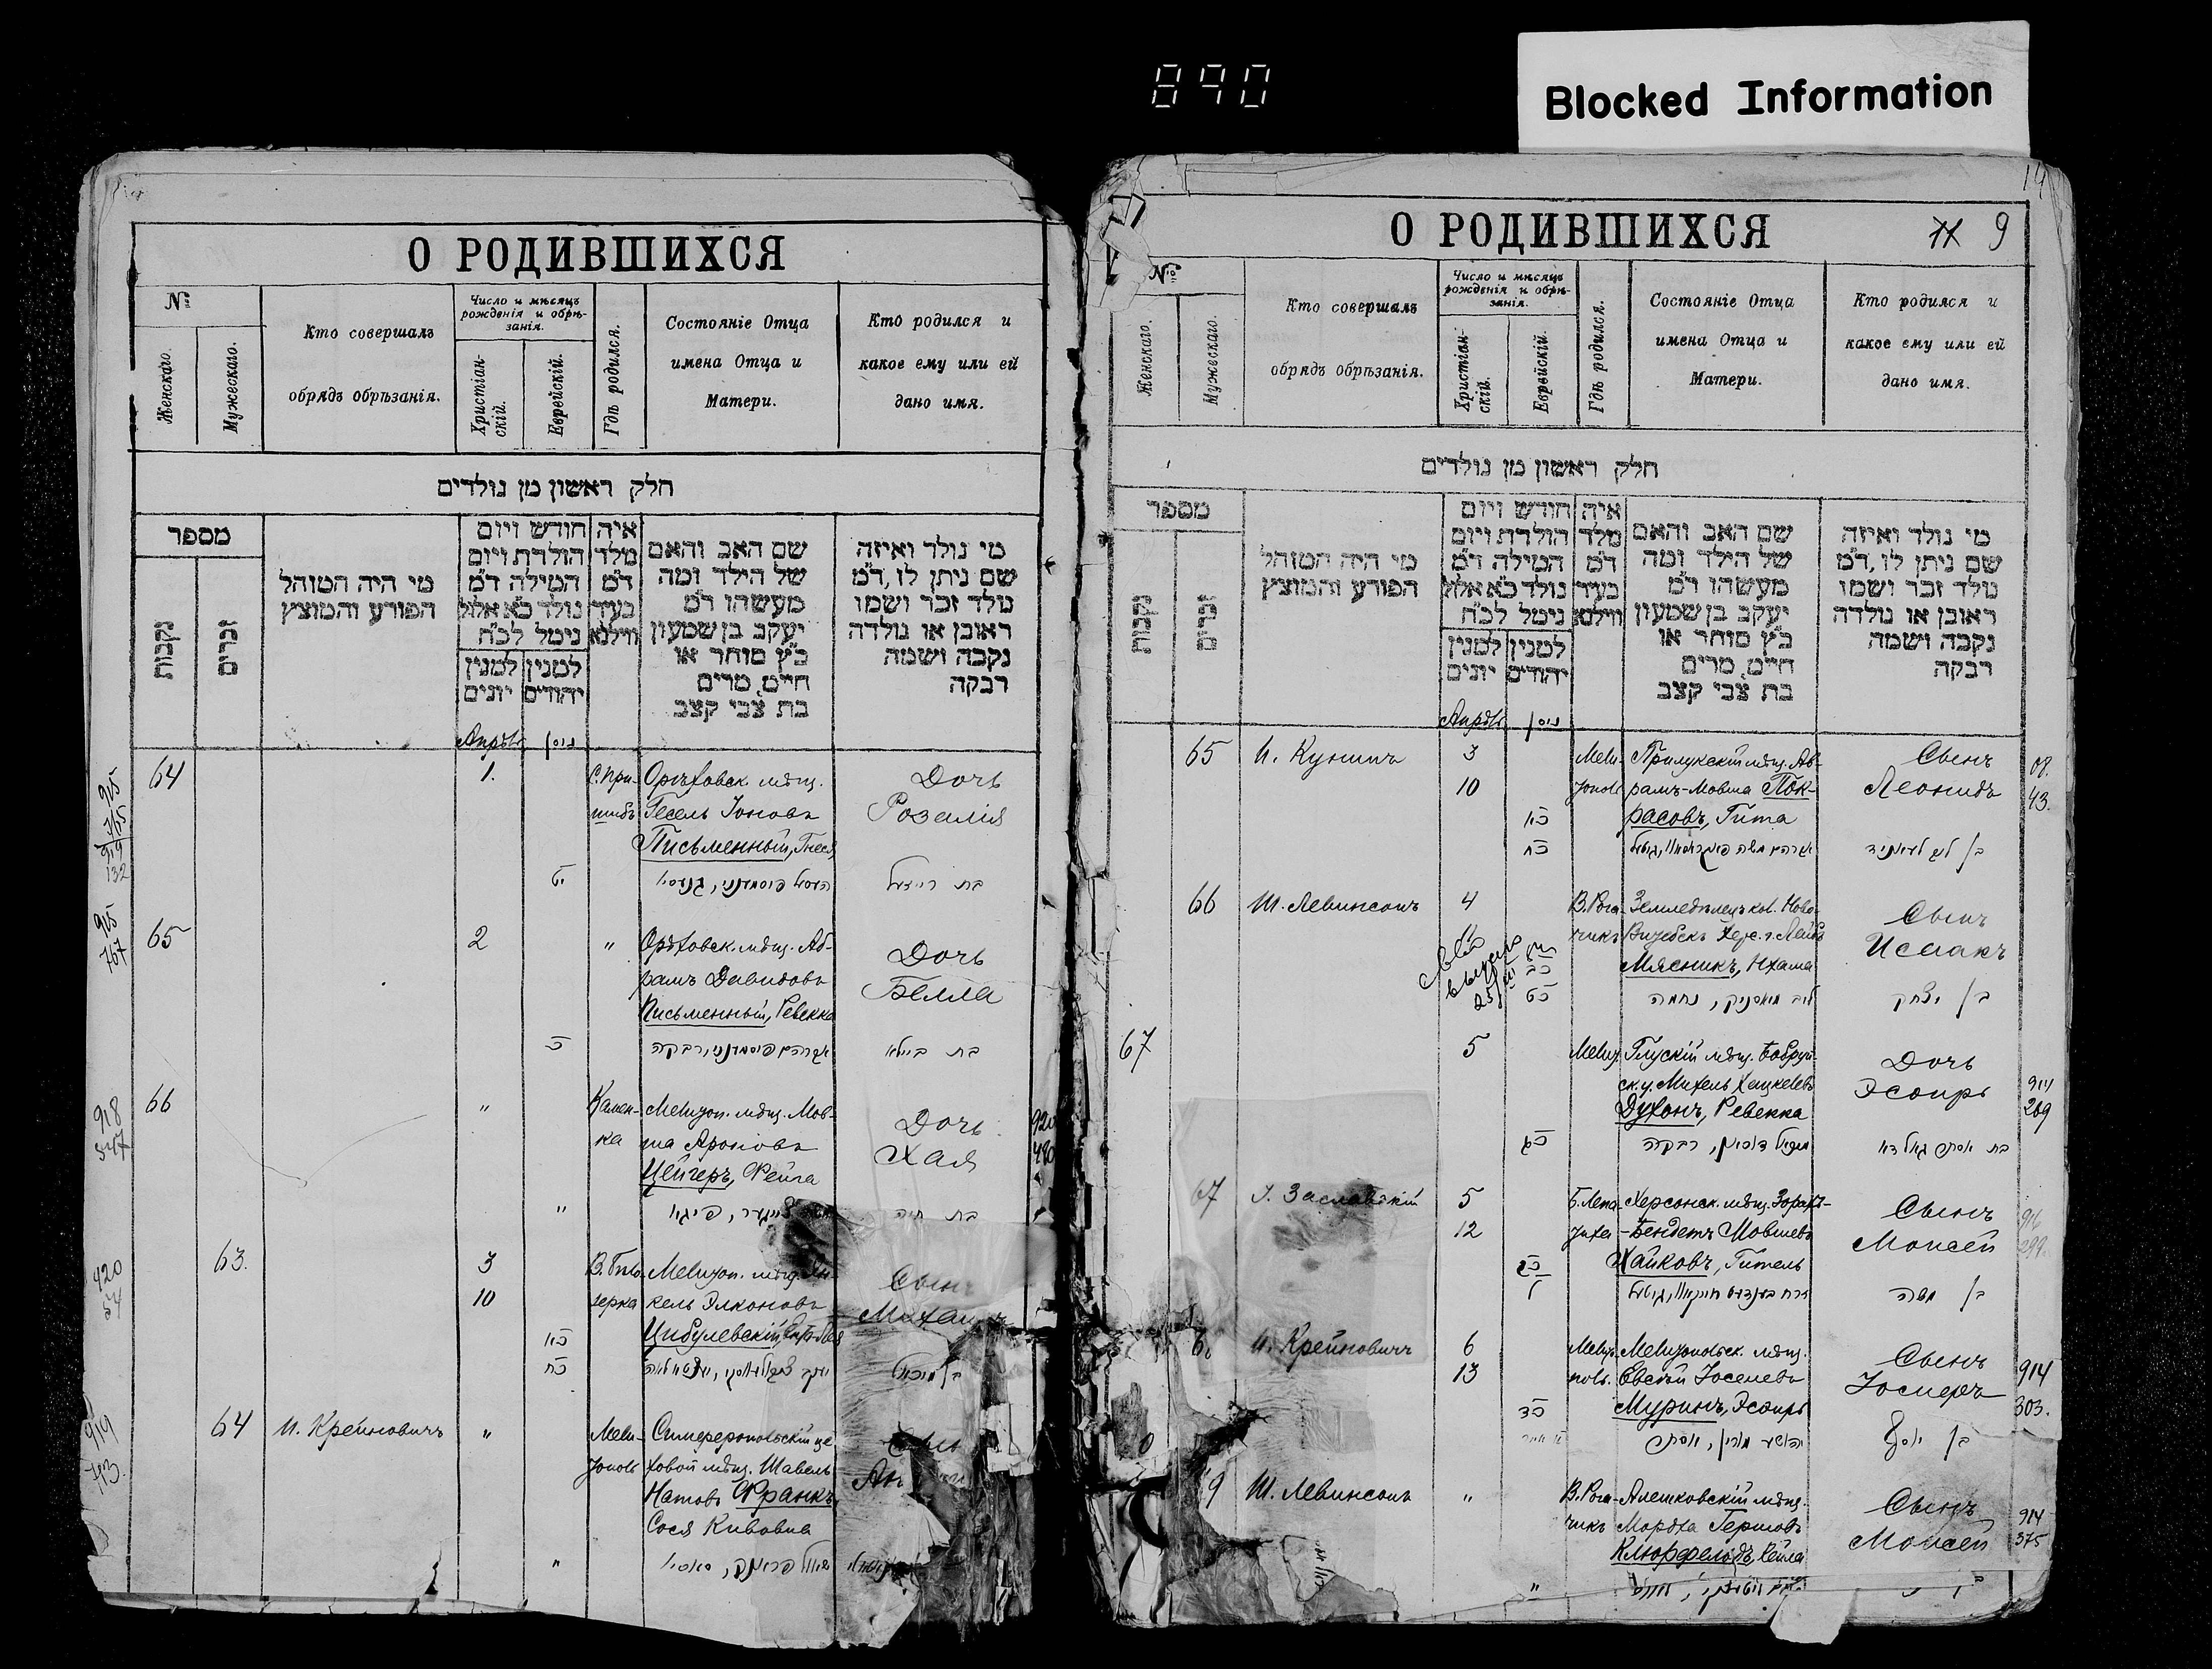 890
Blocked Information
О РОДИВШИХСЯ
№
Женскаго.
Мужескаго.
Кто совершалъ
обрядъ обрѣзанія.
Число и мѣсяцъ
рожденія и обрѣ-
занія.
Христіан-
скій.
Еврейскій.
Гдѣ родился.
Состояніе Отца
имена Отца и
Матери.
Кто родился и
какое ему или ей
дано имя.
חלק ראשון מן נולדים
מספר
נקבות
זכרים
מי היה המוהל
הפורע והמוצץ
חודש ויום
הולדת ויום
המילה ד"מ
נולד כ"א אלול
נימל לכ"ח
למנין יונים
למנין יהודים
איה
מלד
ד"מ
בעיר
ווילנא
שם האב והאם
של הילד ומה
מעשהו ד"מ
יעקב בן שמעון
כ"ץ סוחר או
חי"ט, מרים
בת צבי קצב
מי נולד ואיזה
שם ניתן לו, ד"מ
נולד זכר ושמו
ראובן או נולדה
נקבה ושמה
רבקה
Апрѣль
ניסן
64
1.
С. При-
шибъ
Орѣховск. мѣщ.
Гесель Іоновъ
Письменный, Гнеся
Дочь
Розалія
יט
65
2
"
Орѣховск. мѣщ. Аб-
рамъ Давидовъ
Письменный, Ревекка
Дочь
Бѣлла
כ
אברהם פיסמעני, רבקה
בת ביילא
66
"
Камен-
ка
Мелитоп. мѣщ. Мов-
ша Ароновъ
Цейгеръ, Фейга
Дочь
Хая
"
בת חיה
63.
3
10
Мелитоп. мѣщ. Ян-
кель Элконовъ
Цибулевскій
Сынъ
Михаилъ
כא
כח
בן מיכאל
64
И. Крейновичъ
"
Мели-
тополь
Симферопольскій це-
ховой мѣщ. Шавель
Натовъ Франкъ,
Сося Кивовна
"
О РОДИВШИХСЯ
9
№
Женскаго.
Мужескаго.
Кто совершалъ
обрядъ обрѣзанія.
Число и мѣсяцъ
рожденія и обрѣ-
занія.
Христіан-
скій.
Еврейскій.
Гдѣ родился.
Состояніе Отца
имена Отца и
Матери.
Кто родился и
какое ему или ей
дано имя.
חלק ראשון מן נולדים
מספר
נקבות
זכרים
מי היה המוהל
הפורע והמוצץ
חודש ויום
הולדת ויום
המילה ד"מ
נולד כ"א אלול
נימל לכ"ח
למנין יונים
למנין יהודים
איה
מלד
ד"מ
בעיר
ווילנא
שם האב והאם
של הילד ומה
מעשהו ד"מ
יעקב בן שמעון
כ"ץ סוחר או
חי"ט, מרים
בת צבי קצב
מי נולד ואיזה
שם ניתן לו, ד"מ
נולד זכר ושמו
ראובן או נולדה
נקבה ושמה
רבקה
Апрѣль
ניסן
65
И. Кунинъ
3
10
Мели-
тополь
Прилукскій мѣщ. Аб-
рамъ-Мовша Пок-
расовъ, Гита
Сынъ
Леонидъ
כא
כח
66
Ш. Левинсонъ
4
11
В. Рога-
чикъ
Земледѣлецъ кол. Ново-
Витебскъ Хер. г. Лейба
Мясникъ, Нхама
Сынъ
Исаакъ
כב
כט
לייב מיאסניק, נחמה
בן יצחק
67
5
Мелит.
Глускій мѣщ. Бобруй-
ск. у. Михель Хацкелевъ
Духонъ, Ревекка
Дочь
Эсѳирь
914
269
כג
67
І. Заславскій
5
12
Б. Лепа-
тиха
Херсонск. мѣщ. Зорахъ-
-Бендетъ Мовшевъ
Хайковъ, Гитель
Сынъ
Моисей
כג
ל
בן משה
И. Крейновичъ
6
13
Мелито-
поль.
Мелитопольск. мѣщ.
Евсѣй Іоселевъ
Муринъ, Эсѳирь
Сынъ
Іосифъ
914
303.
כד
יהושע מורין, אסתר
בן יוסף
9
Ш. Левинсонъ
"
В. Рога-
чикъ
Алешковскій мѣщ.
Мордха Гершовъ
Сынъ
Моисей
914
375
"